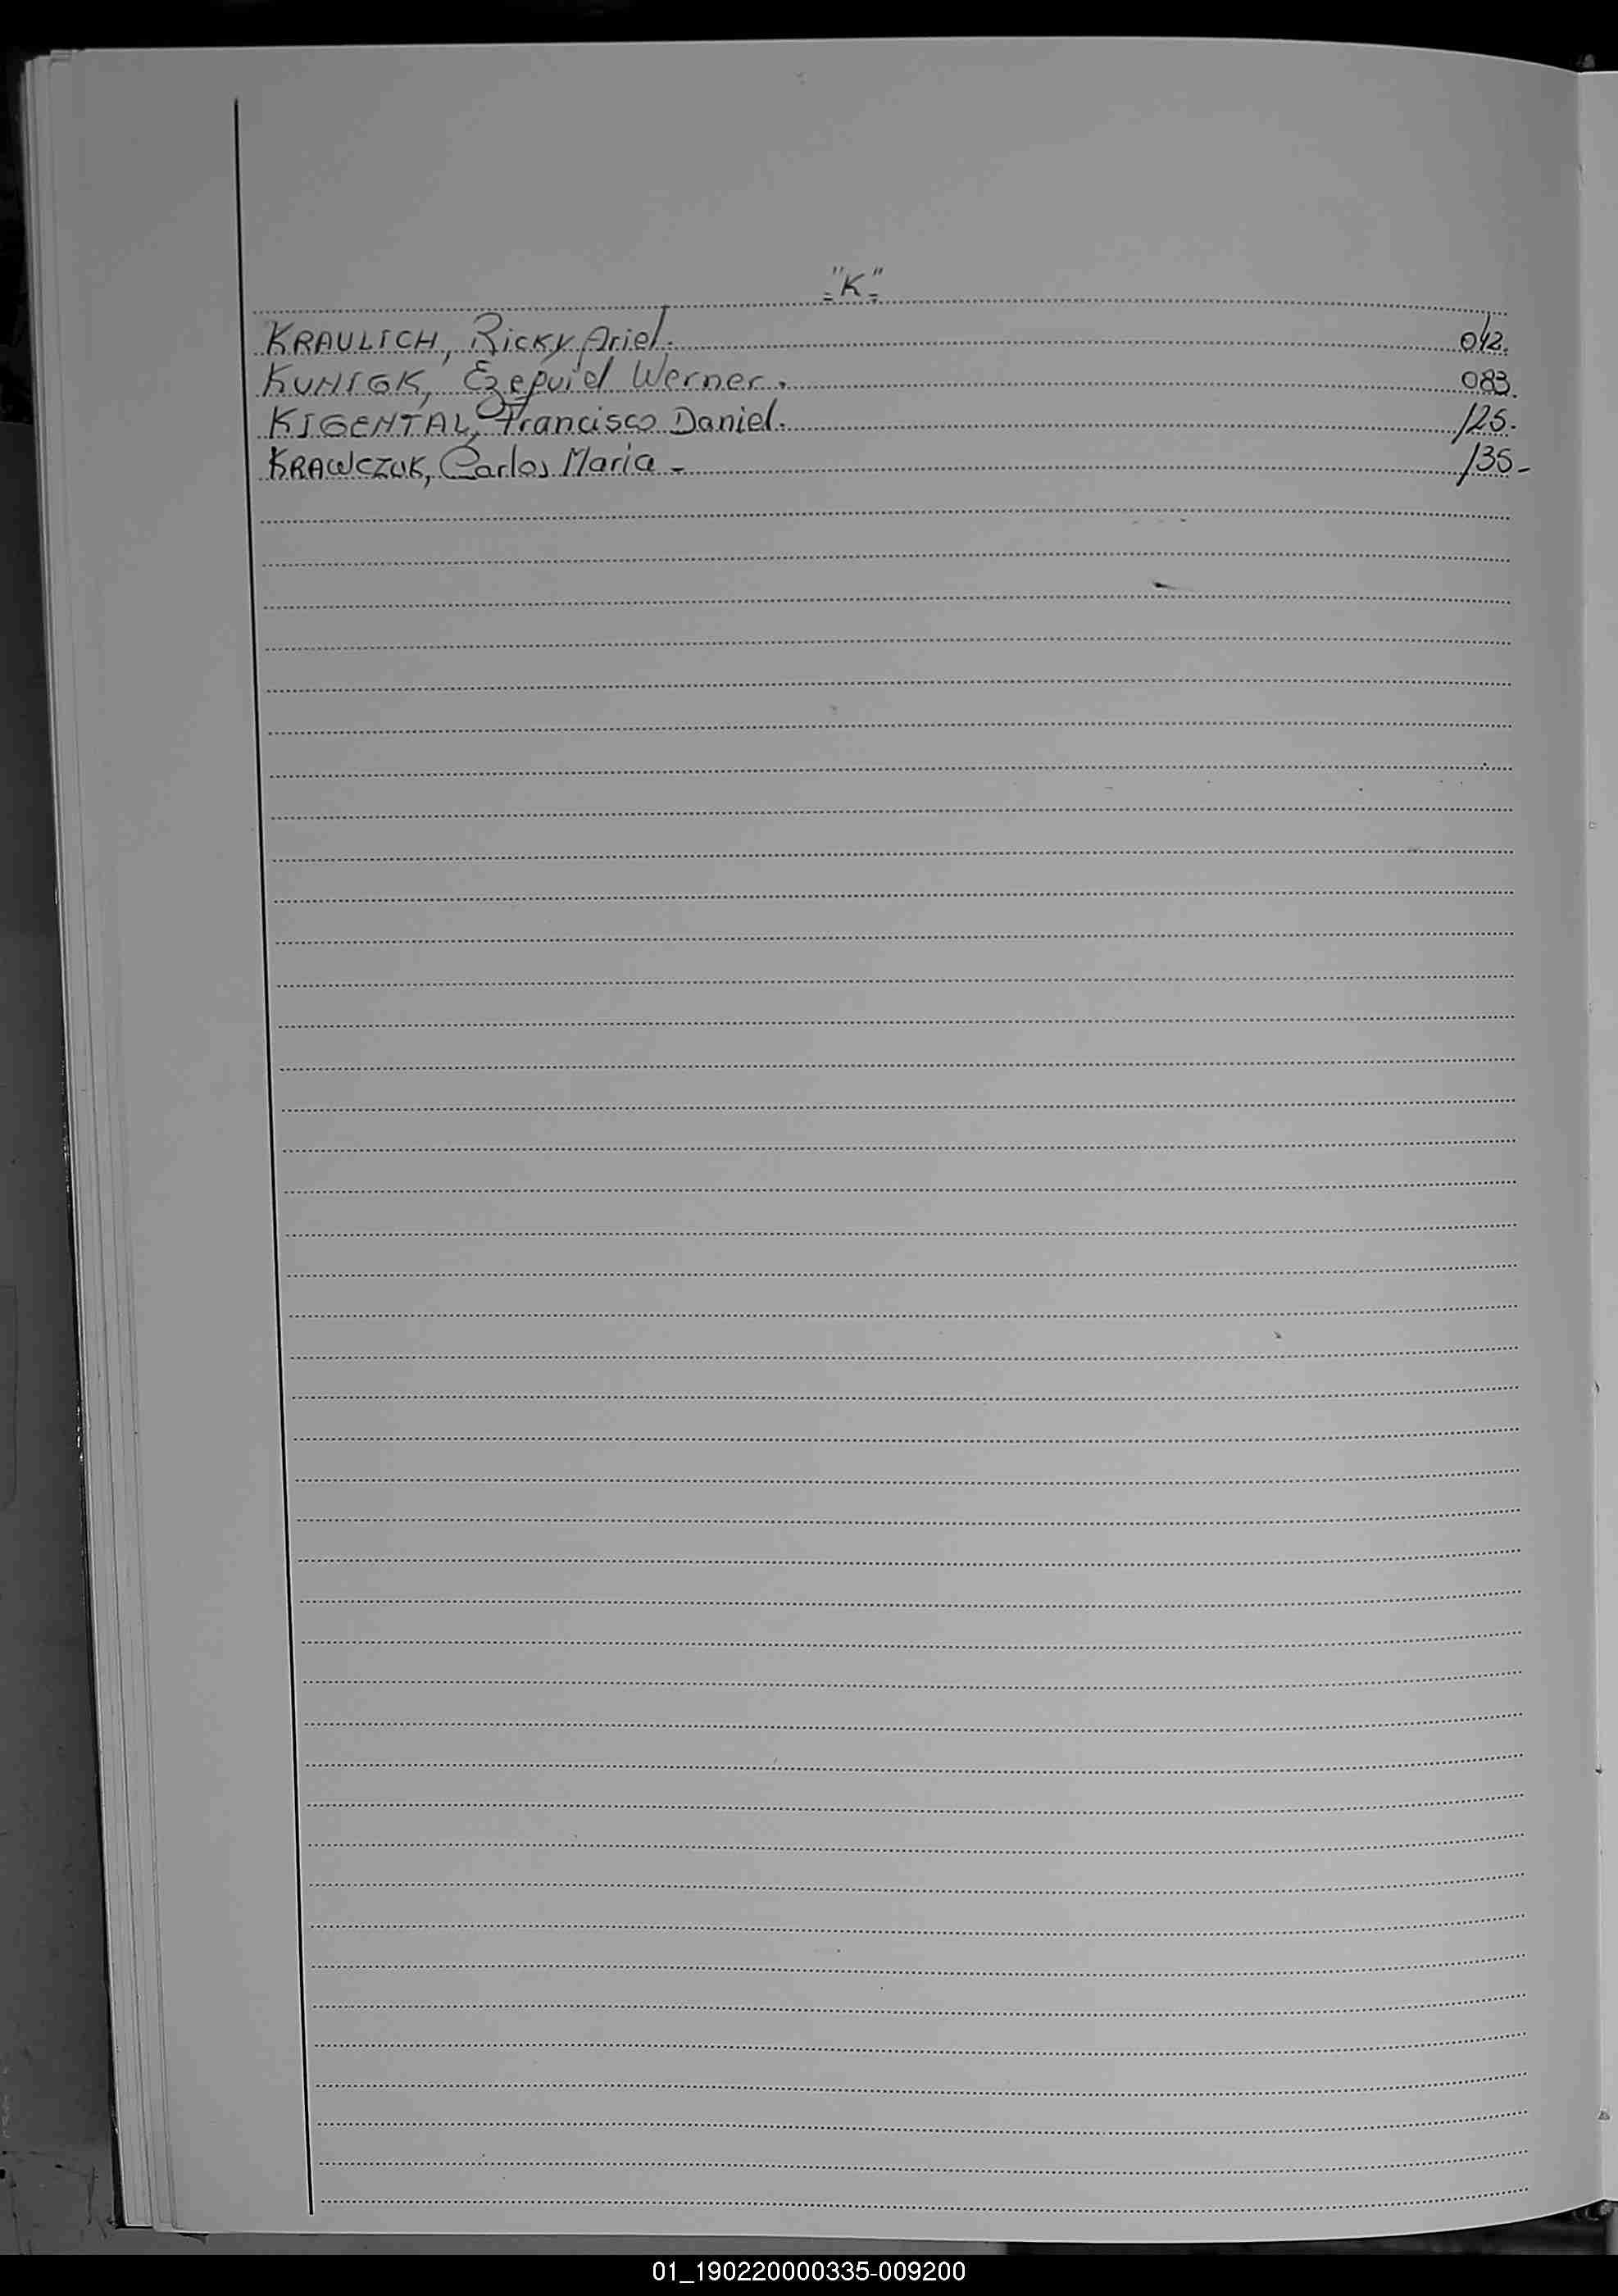 ="K"=
KRAULICH, Ricky Ariel. 042.
KUNIGK, Ezequiel Werner. 083.
KIGENTAL, Francisco Daniel. 125.
KRAWCZUK, Carlos Maria - 135-
01_190220000335-009200